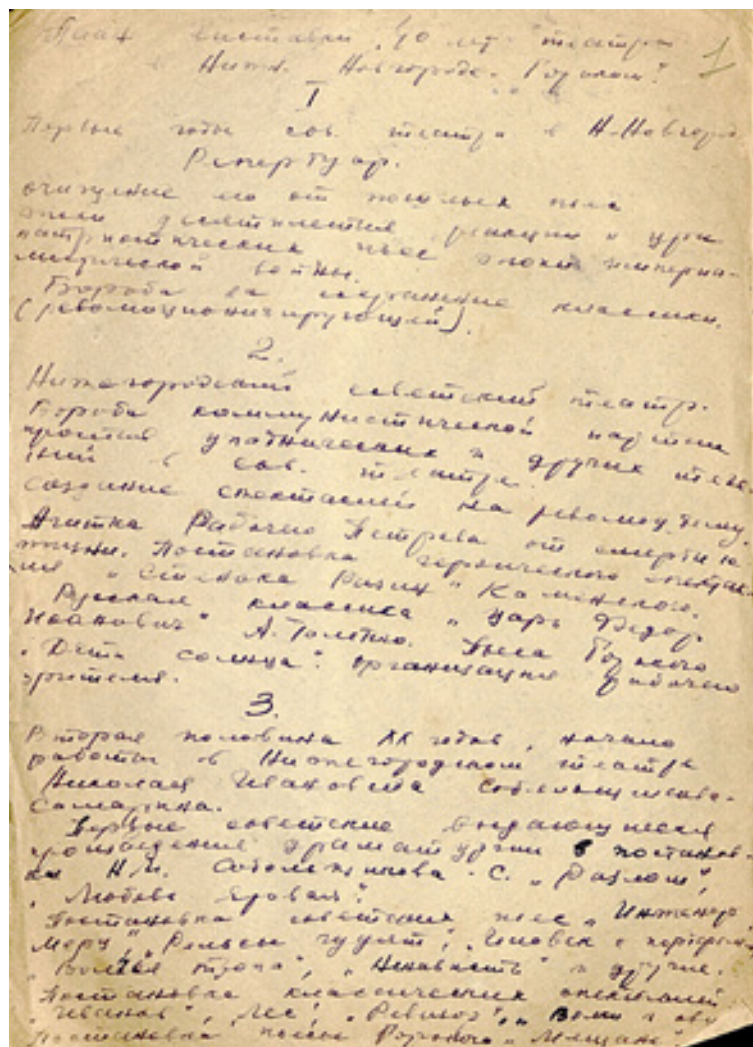 План выставки „40 лет театра
в Нижн. Новгороде - Горьком"
1
I
Первые годы сов. театра в Н-Новгор.
Репертуар.
очищение его от пошлых пьес
эпохи десятилетия реакции и ура
патриотических пьес эпохи империа-
листической войны.
Борьба за сохранение классики.
(революционизирующей).
2.
Нижегородский советский театр.
Борьба коммунистической партии
против упаднических и других тече-
ний в сов. театре.
Создание спектаклей на революц. тему.
Агитка Рабочего Петрева от смерти к
жизни. Постановка героического спектак-
ля „Стенька Разин" Каменского.
Русская классика „Царь Федор
Иванович" А. Толстого. Пьеса Горького
„Дети солнца". организация рабочего
зрителя.
3.
Вторая половина XX годов, начало
работы в Нижегородском театре
Николая Ивановича Собольщикова-
Самарина.
Первые советские выдающиеся
произведения драматургии в постанов-
ке Н.И. Собольщикова - С. „Разлом",
„Любовь Яровая".
Постановка советских пьес „Инженер
Мерц", „Рельсы гудят", „Человек с портфелем"
„Волчья тропа", „Ненависть" и другие.
Постановка классических спектаклей
„Иванов", „Лес", „Ревизор", „Волки и овц
Постановка пьесы Горького „Мещане".